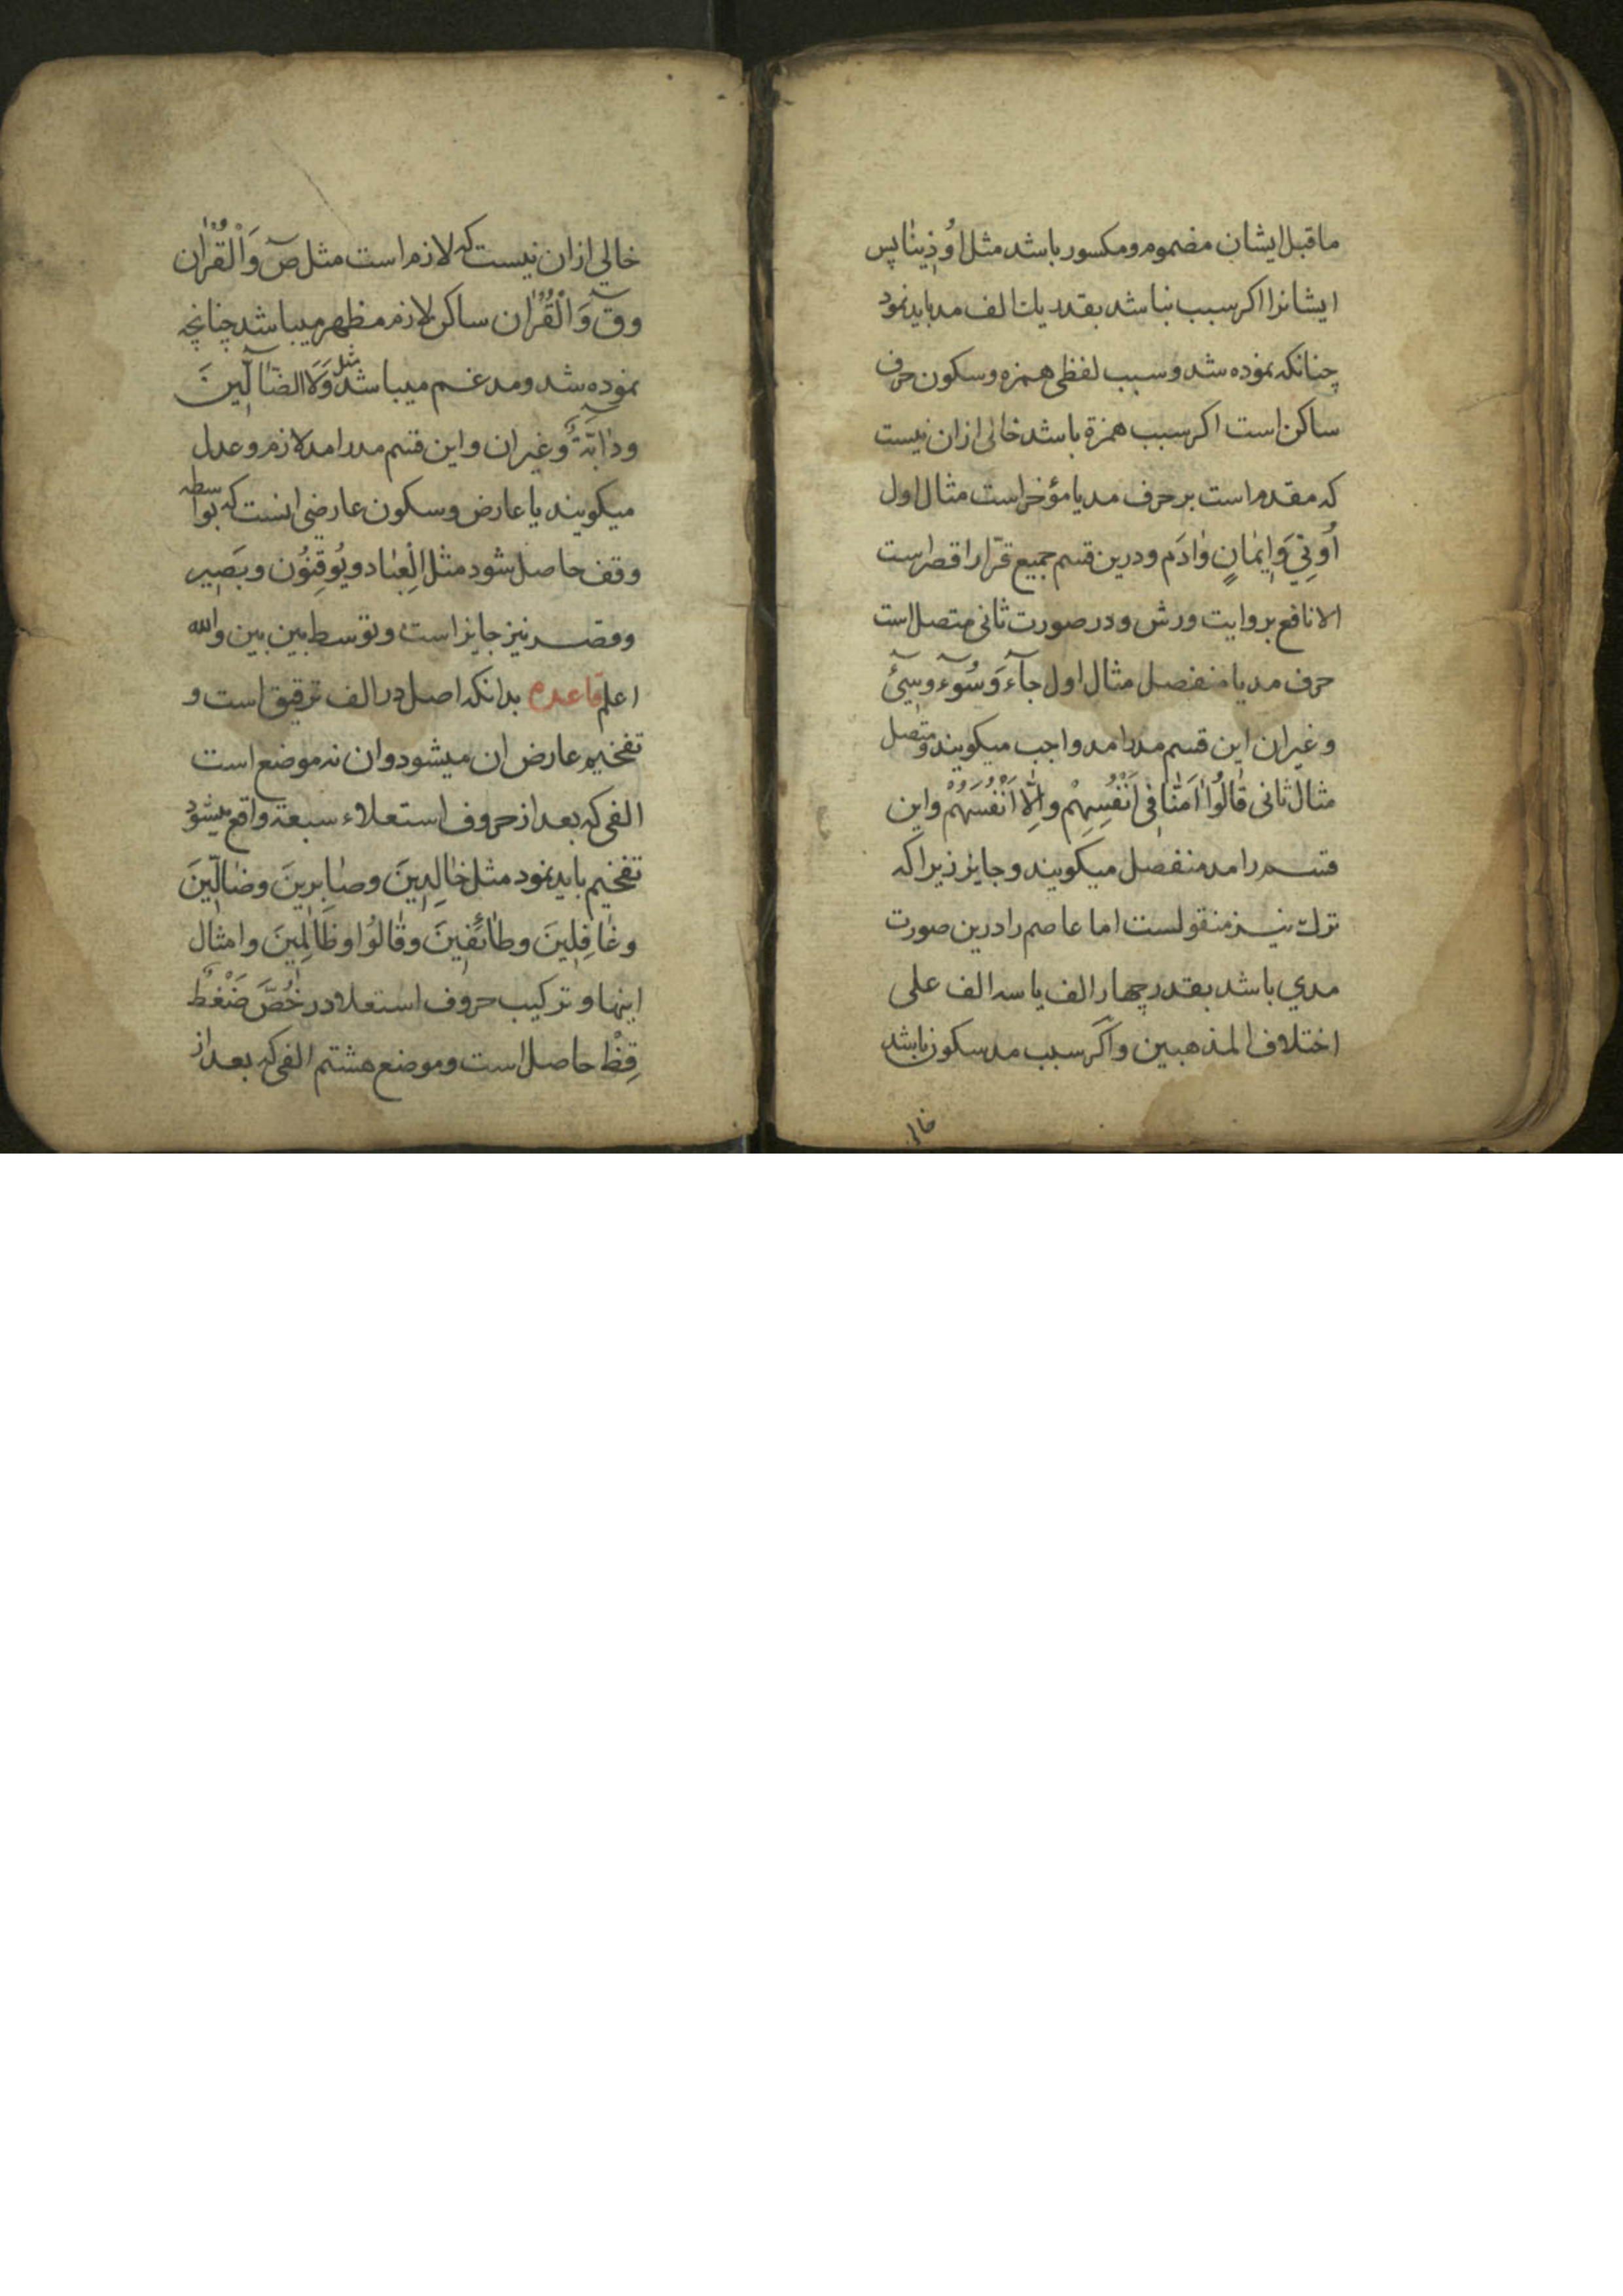 ماقبل ایشان مضموم ومکسور باشد مثل اُوذِینَا پس
ایشانرا اکر سبب نباشد بقدر یك الف مد باید نمود
چنانکه نموده شد وسبب لفظی همزه وسکون حرف
ساکن است اکر سبب همزة باشد خالی ازان نیست
که مقدم است بر حرف مد یا مؤخر است مثال اول
اُوتِيَ وَاِیمَانٍ وَادَم ودرین قسم جمیع قرّا را قصر است
الا نافع بروایت ورش ودر صورت ثانی متصل است
حرف مد یا منفصل مثال اول جآءَ وَسُوٓءَ وسِیٓئَ
وغیر ان این قسم مد را مد واجب میکویند ومتصل
مثال ثانی قَالُوا اٰمَنَّا فِی اَنْفُسِهِمْ وَاِلَّا اَنْفُسَهُمْ واین
قسم را مد منفصل میکویند وجایز زیرا که
ترك نیز منقولست اما عاصم را درین صورت
مدي باشد بقدر چهار الف یا سه الف علی
اختلاف المذهبین واکر سبب مد سکون باشد
خالي
خالي ازان نیست که لازم است مثل صٓ وَالْقُرْاٰن
وقٓ وَالْقُرْاٰن ساکن لازم مظهر میباشد چنانچه
نموده شد ومدغم میباشد مثل وَلَا الضَّآلِّینَ
ودَآبَّةٌ وغیر ان واین قسم مد را مد لازم وعدل
میکویند یا عارض وسکون عارضي انست که بواسطه
وقف حاصل شود مثل اَلْعِبَاد ویُوقِنُون وبَصِیر
وقصر نیز جایز است وتوسط بین بین والله
اعلم قاعده بدانکه اصل در الف ترقیق است و
تفخیم عارض ان میشود وان نه موضع است
الفی که بعد از حروف استعلاء سبعة واقع میشود
تفخیم باید نمود مثل خَالِدِینَ وصَابِرِینَ وضَالِّینَ
وغَافِلِینَ وطَائفِینَ وقَالُوا وظَالِمِینَ وامثال
اینها وترکیب حروف استعلا در خُصَّ ضَغْطٍ
قِظْ حاصل است وموضع هشتم الفی که بعد از